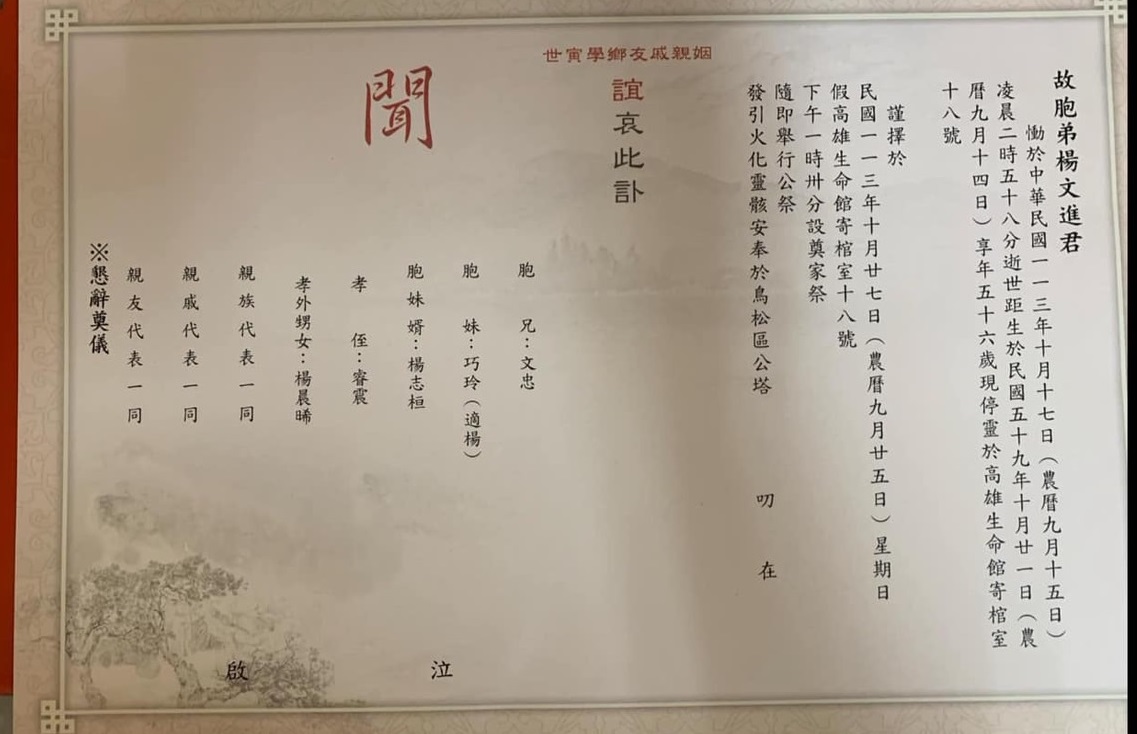 故胞弟楊文進君
慟於中華民國一一三年十月十七日（農曆九月十五日）
凌晨二時五十八分逝世距生於民國五十九年十月廿一日（農
曆九月十四日）享年五十六歲現停靈於高雄生命館寄棺室
十八號
謹擇於
民國一一三年十月廿七日（農曆九月廿五日）星期日
假高雄生命館寄棺室十八號
下午一時卅分設奠家祭
隨即舉行公祭
發引火化靈骸安奉於鳥松區公塔
叨在
世寅學鄉友戚親姻
誼哀此訃
聞
胞兄：文忠
胞妹：巧玲（適楊）
胞妹婿：楊志桓
孝侄：睿震
孝外甥女：楊晨晞
親族代表一同
親戚代表一同
親友代表一同
泣啟
※懇辭奠儀